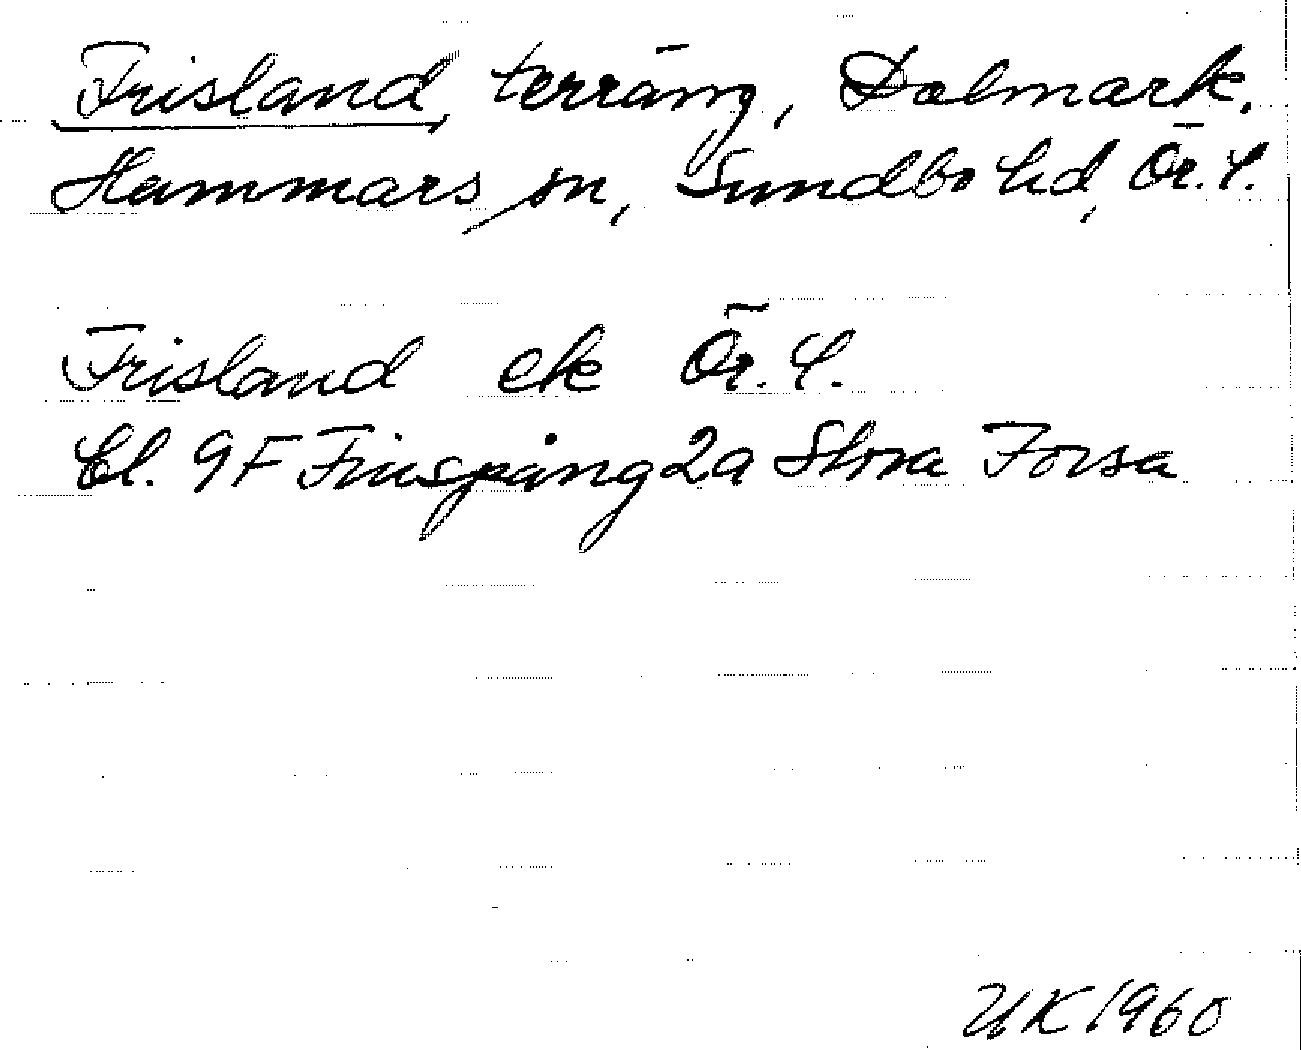 Frisland, terräng, Dalmark,
Hammars sn, Sundbo hd, Ör. l.
Frisland ek Ör. l.
Bl. 9F Finspång 2a Stora Forsa
UK 1960